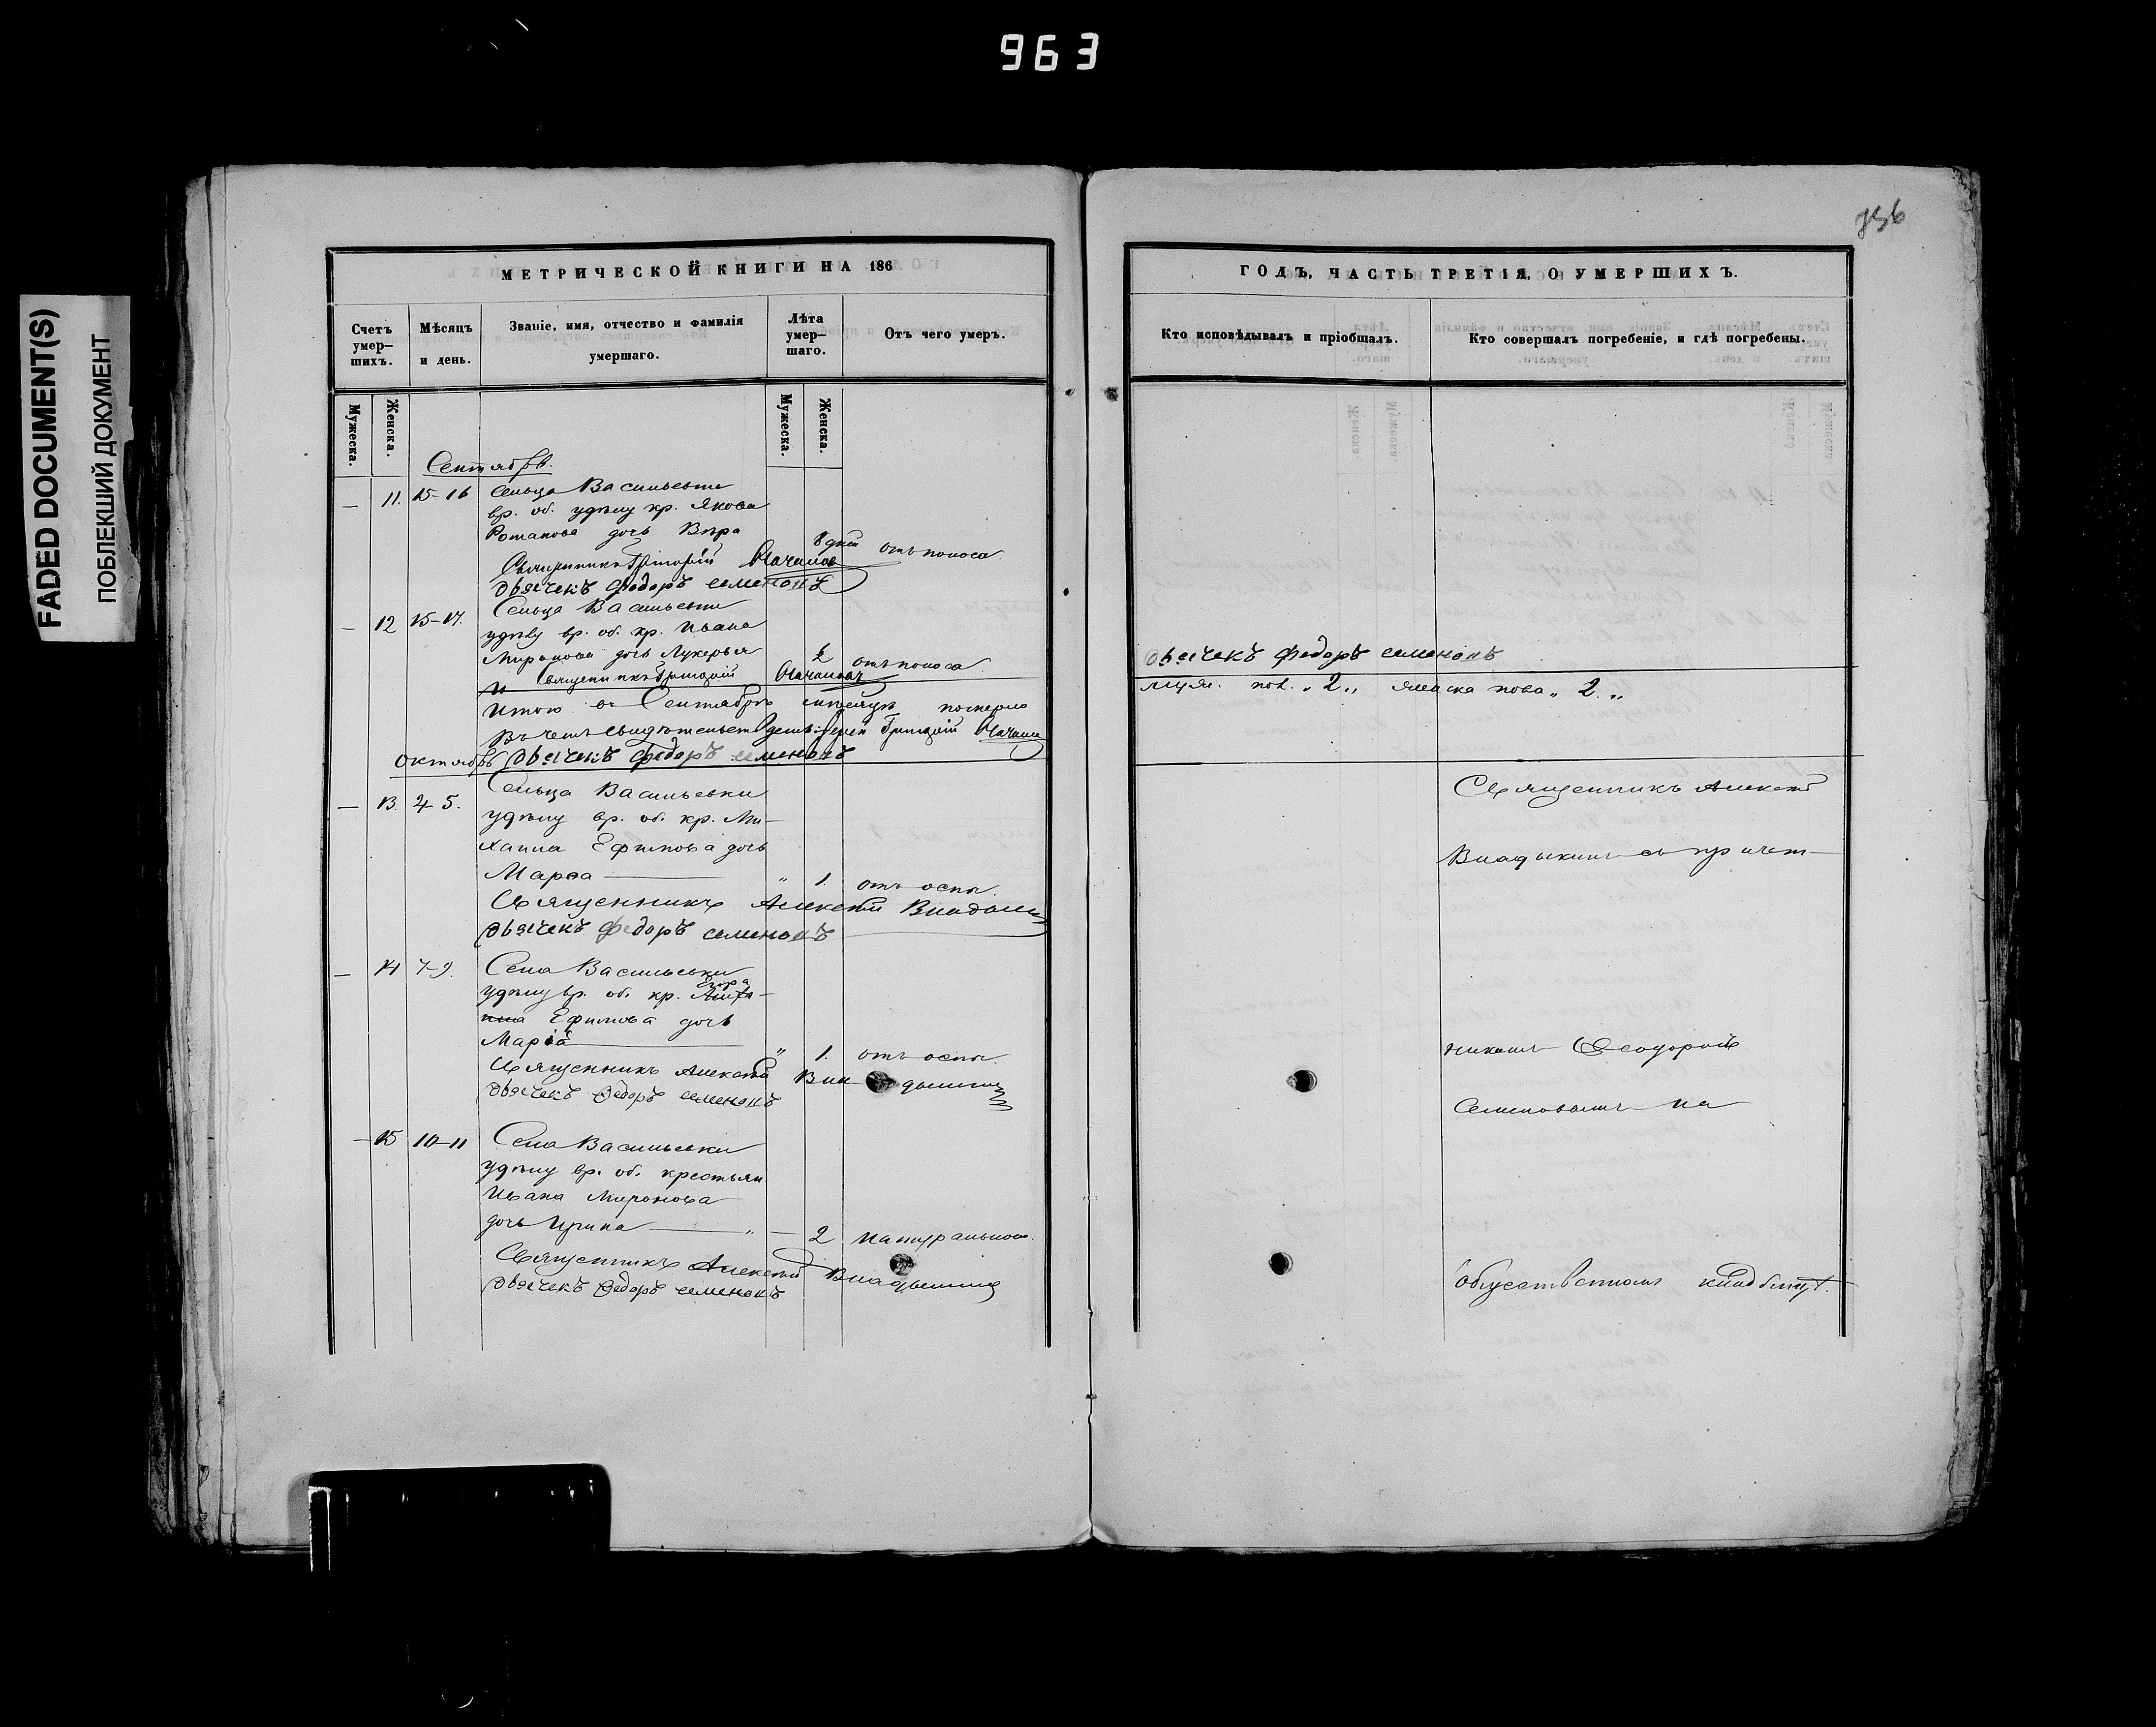 963
FADED DOCUMENT(S)
ПОБЛЕКШИЙ ДОКУМЕНТ
МЕТРИЧЕСКОЙ КНИГИ НА 186
Счетъ умер-шихъ.
Мѣсяцъ и день.
Званіе, имя, отчество и фамилія умершаго.
Лѣта умер-шаго.
Отъ чего умеръ.
Мужеска.
Женска.
Мужеска.
Женска.
Сентябрь.
— 11. 15-16 Сельца Васильевки
вр. об. удѣлу кр. Якова
Романова дочь Вѣра
8 дней отъ поноса
Священникъ Григорій
дьячекъ федоръ семеновъ
— 12 15-17. Сельца Васильевки
удѣлу вр. об. кр. Ивана
Миронова дочь Лукерья
отъ поноса
Священникъ Григорій
Итого въ Сентябрѣ померло
Въ чемъ Григорій
Октябрь дьячекъ федоръ семеновъ
— 13. 4 5. Сельца Васильевки
удѣлу вр. об. кр. Ми-
хаила Ефимова дочь
Марѳа " 1. отъ оспы.
Священникъ Алексѣй Владыкинъ
дьячекъ федоръ семеновъ
— 14 7-9. Села Васильевки
удѣлу вр. об. кр. Егора
Ефимова дочь
Марія " 1. отъ оспы
Священникъ Алексѣй Владыкинъ
дьячекъ Ѳедоръ семеновъ
— 15 10-11 Села Васильевки
удѣлу вр. об. крестьян
Ивана Миронова
дочь Ирина " — 2 натурально.
Священникъ Алексѣй Владыкинъ
дьячекъ Ѳедоръ семеновъ
756
ГОДЪ, ЧАСТЬ ТРЕТІЯ, О УМЕРШИХЪ.
Кто исповѣдывалъ и пріобщалъ.
Кто совершалъ погребеніе, и гдѣ погребены.
дьячекъ федоръ семеновъ
пол. „ 2 „ женска пола „ 2. „
Священникъ Алексѣй
Владыкинъ съ причет-
никомъ Ѳеодоромъ
Семеновымъ на
общественномъ кладбищѣ.